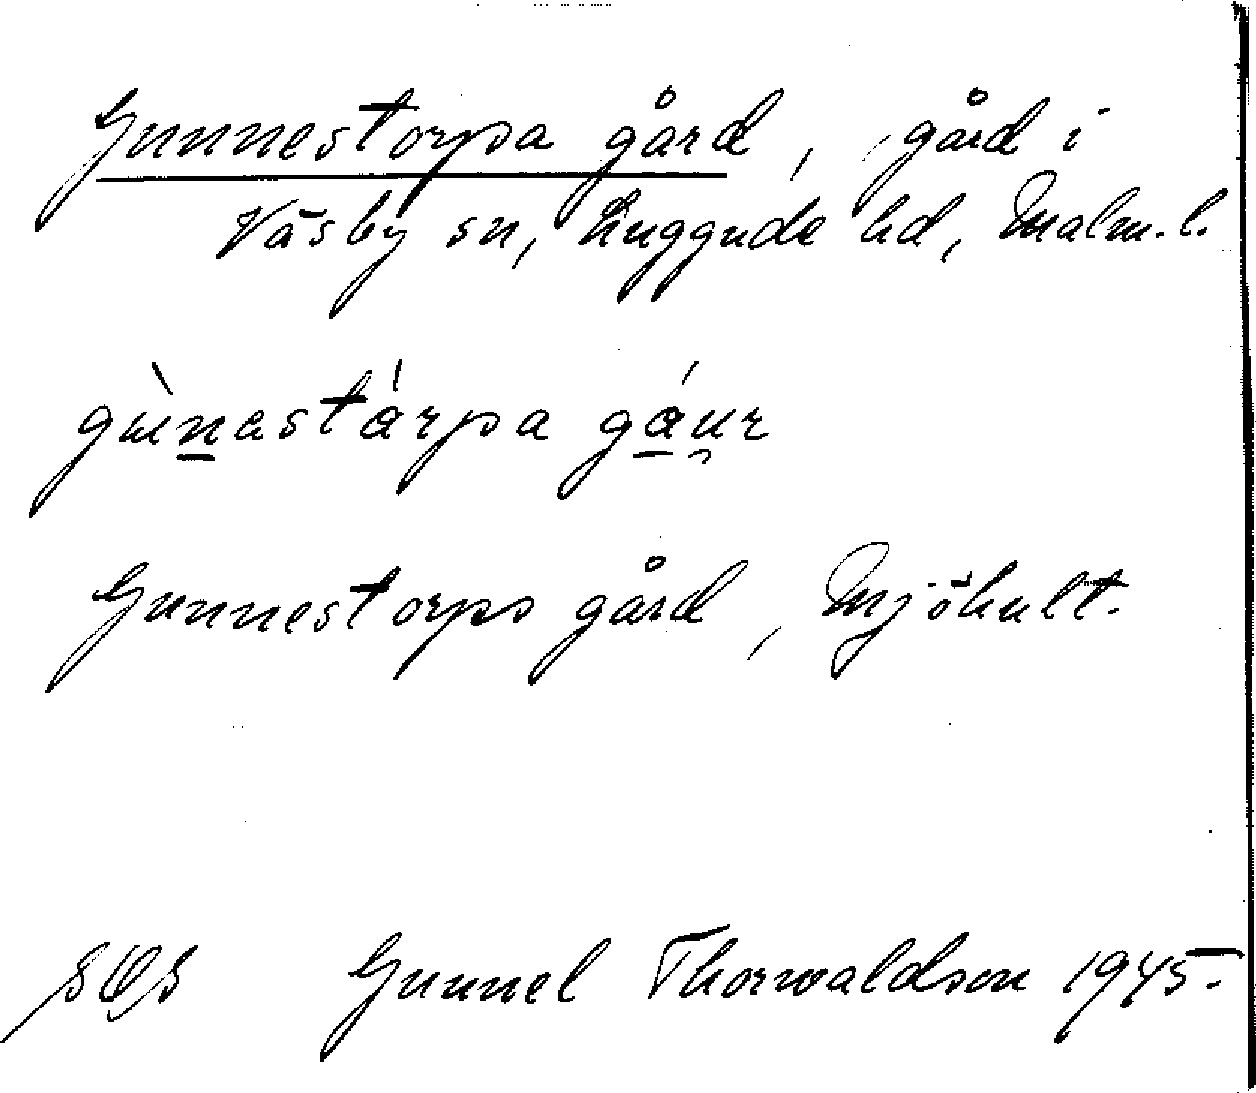 Gunnestorpa gård, gård i
Väsby sn, Luggude hd, Malm. l.
gùnastárpa gáur
Gunnestorps gård, Mjöhult.
Gunnel Thorwaldson 1945.